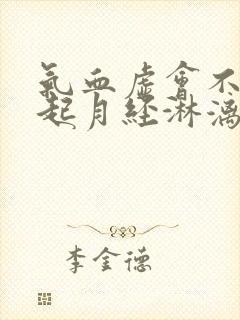 氣血虛會不
起月經淋漓
李金德